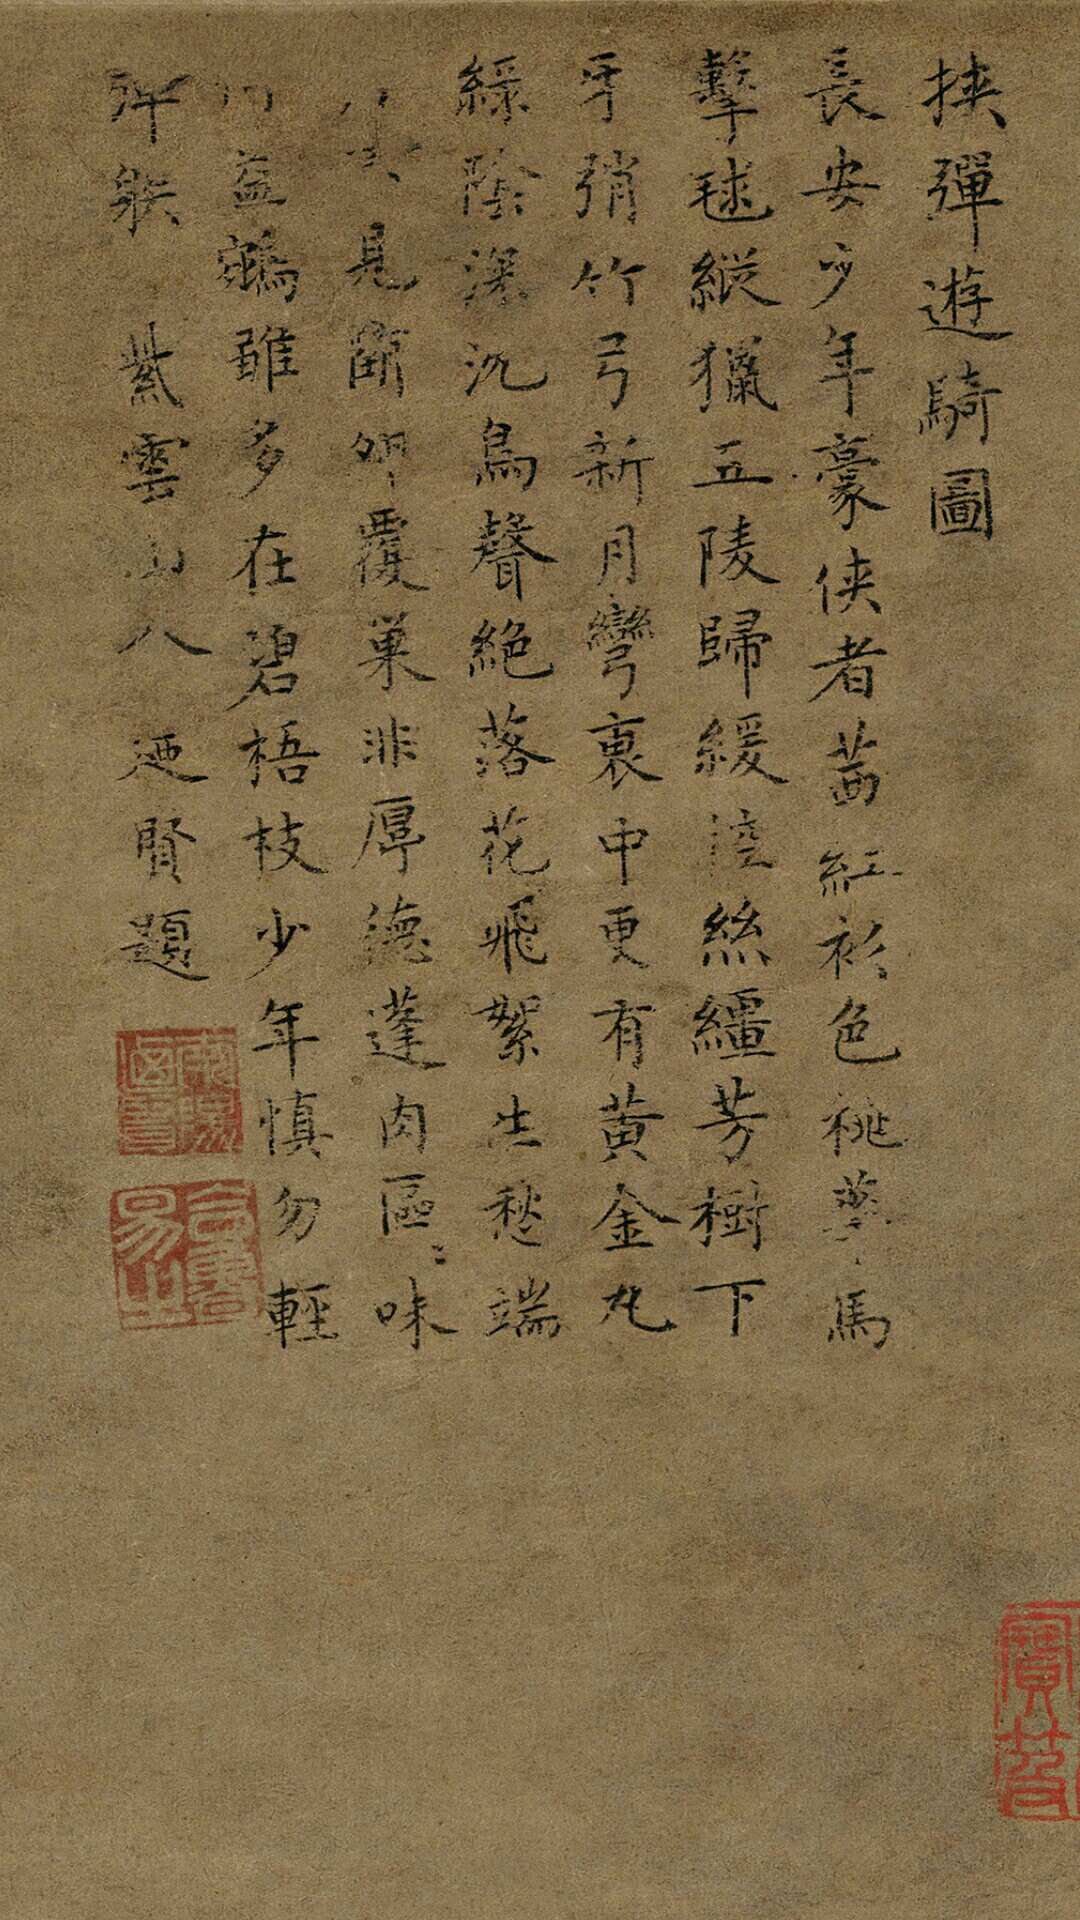 挾彈遊騎圖
長安少年豪俠者茜紅衫色桃華馬
擊毬縱獵五陵歸緩控絲繮芳樹下
牙弰竹弓新月彎裏中更有黃金丸
綠陰深沉烏聲絕落花飛絮生愁端
見斷卵覆巢非厚德蓬肉區〻味
益鷀雖多在碧梧枝少年慎勿輕
彈射 紫雲山人迺賢題